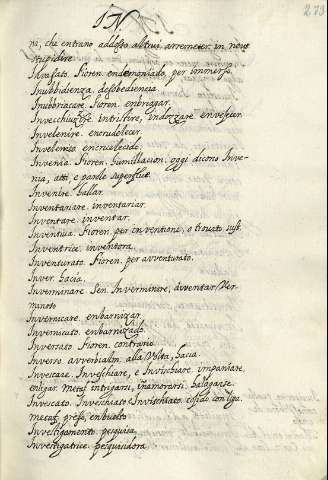 IN
273
ni, che entrano addosso altrui, arremeter, in nove
stupidire
Inrafato. Fioren. endemoniado, per immerso
Inubbidienza, desobediencia.
Inubbriacare. Fioren. embriagar.
Invecchiuzzire, intristire, indozzare, envejecer.
Invelenire. encrudelecer.
Invelenito, encrudelecido.
Invenia. Fioren. humillacion, oggi dicono Inve-
nia, atti e parole superflue.
Invenire. hallar.
Inventariare. inventariar.
Inventare. inventar.
Inventiva. Fioren. per inventione, o trovato sust.
Inventrice. inventora.
Inventurato. Fioren. per avventurato.
Inver. hacia.
Inverminare. Sen. Inverminire, diventar Ver-
minoso
Invernicare. enbarnizar.
Invernicato. enbarnizado.
Inversato Fioren. contrario
Inverso. avverbialm. alla Volta, hacia.
Invescare, Inveschiare, e Invischiare. impaniare,
enligar. Metaf. intrigarsi, inamorarsi.
Invescato, Inveschiato e Invischiato. cogido con liga.
metaf. preso, enbuelto
Investigamento. pesquisa.
Investigatrice. pesquisidora.